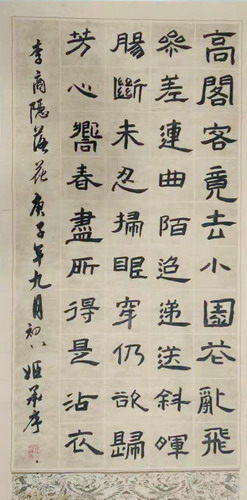 高閣客竟去小園花亂飛
參差連曲陌迢遞送斜暉
腸斷未忍掃眼穿仍欲歸
芳心嚮春盡所得是沾衣
李商隱落花庚子年九月初八姬